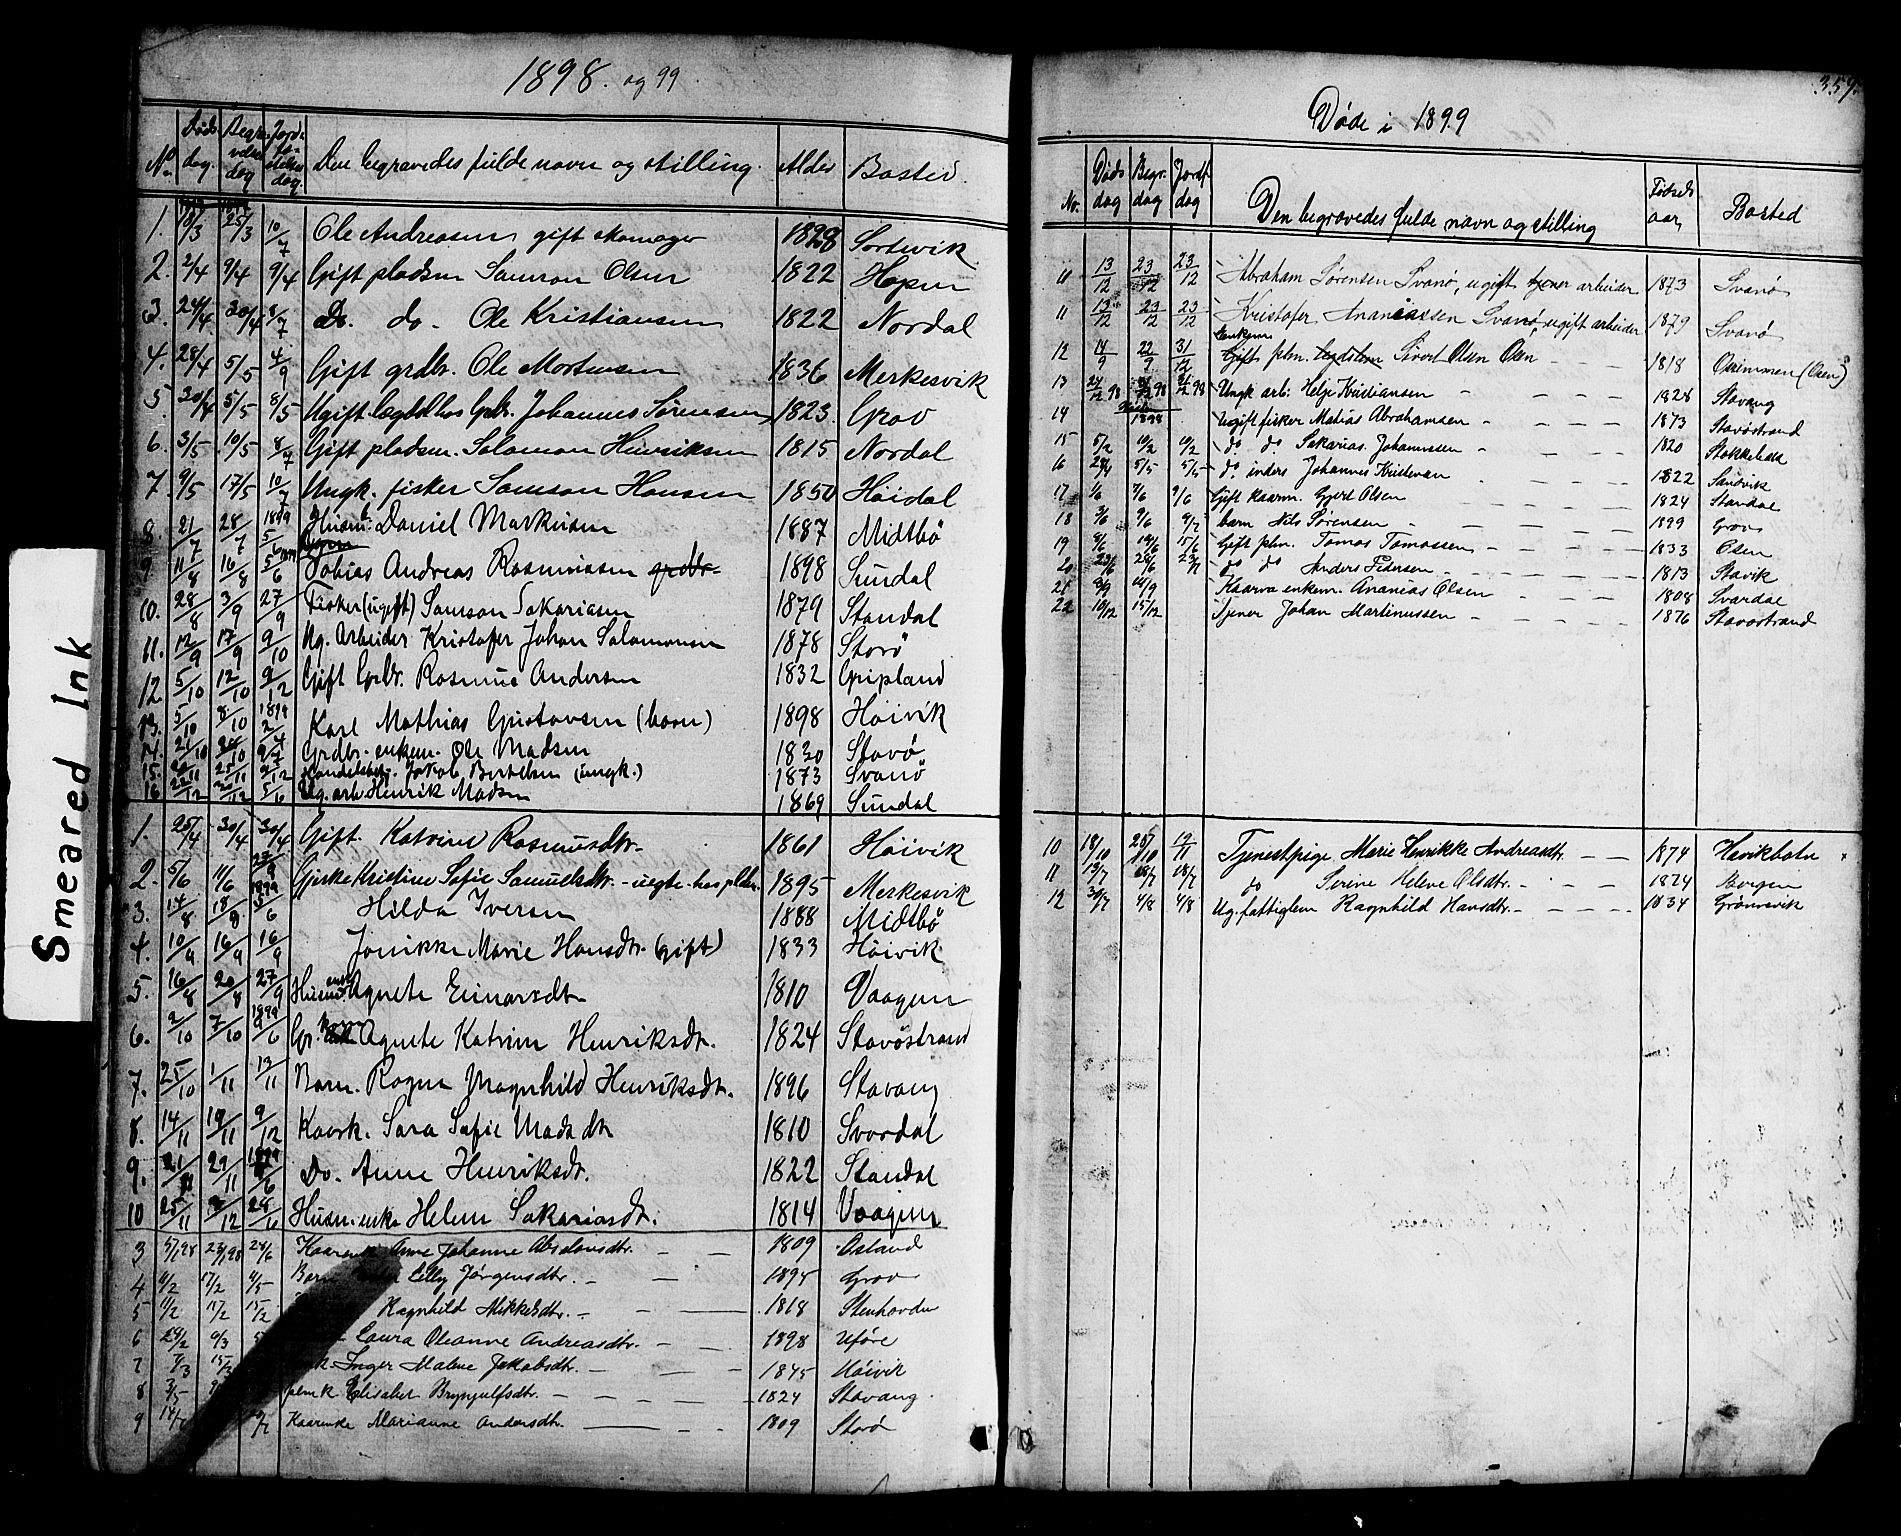 1898. og 99
No Døds dag. Begra- velses dag Jord- fæ- stelses dag. Den begravedes fulde navn og stilling. Alder Bosted.
1. 18/3 25/3 10/7 Ole Andreasen gift skomager 1828 Sortevik
2. 2/4 9/4 9/4 Gift pladsm Samson Olsen 1822 Hopen
3. 24/4 30/4 8/7 Do. do. Ole Kristiansen 1822 Nordal
4. 28/4 5/5 4/9 Gift grdbr. Ole Mortensen 1836 Merkesvik
5. 30/4 5/5 8/5 Ugift lægd hos Grbr. Johannes Sørensen 1823 Grov
6. 3/5 10/5 8/7 Gift pladsm. Salomon Henriksen 1815 Nordal
7. 9/5 17/5 10/7 Ungk. fisker Samson Hansen 1850 Høidal
8. 21/7 28/7 1899 5/6 Daniel Markusen 1887 Midtbø
9. 11/8 16/8 5/6 Tobias Andreas Rasmussen grdbr. 1898 Sundal
10. 28/8 3/9 27/9 Fisker (ugift) Samson Sakariasen 1879 Standal
11. 12/9 17/9 9/10 Ug. Arbeider Kristofer Johan Salomonsen 1878 Storø
12 5/10 12/10 9/12 Gift Grbr. Rasmus Andersen 1832 Gripland
13. 5/10 8/10 1899 2/4 Karl Mathias Gustavsen (barn) 1898 Høivik
14. 21/10 Grdbr. enkem. Ole Madsen 1830 Stavø
15. Handelsbetj. Jakob Bertelsen (ungk.) 1873 Svanø
16 5/6 Ug. arb. Henrik Madsen 1869 Sundal
1. 25/4 30/4 30/4 Gift. Katrine Rasmusdtr. 1861 Høivik
2. 5/6 11/6 Gjeske Kristine Sofie Samuelsdtr. - uegte - hos pldsm. 1895 Merkesvik
3. 14/8 18/8 1899 5/6 Hilda Iversen 1888 Midtbø
4. 10/9 16/9 16/9 Jonikke Marie Hansdtr. (gift) 1833 Høivik
5. 16/8 20/8 27/9 Husm. enke Agnete Einarsdtr. 1810 Vaagen
6. 2/10 7/10 1899 9/6 Gr. Agnete Katrine Henriksdtr. 1824 Stavøstrand
7. 25/10 1/11 13/11 Barn. Ragna Magnhild Henriksdtr. 1896 Stavang
8. 14/11 19/11 9/12 Kaark. Sara Sofie Madsdtr 1810 Svardal
9. 21/11 29/11 1899 Do. Anne Henriksdtr. 1822 Standal
10 25/11 Husm. enke Helene Sakariasdtr. 1814 Vaagen
3 5/1 98 23/1 98 24/6 Kaarenke Anne Johanne Absalonsdtr. 1809 Osland
4 11/2 17/2 11/5 Barn Lilly Jørgensdtr. 1895 Grov
5 11/2 15/2 15/2 Ragnhild Mikkelsdtr. 1818 Stenhovden
6 24/2 9/3 Laura Oleanne Andreasdtr. 1898 Uføre
7 7/3 15/3 Inger Malene Jakobsdtr. 1845 Høivik
8 3/5 plmk Elisabet Brynjulfsdtr. 1824 Stavang
9 14/7 Kaarenke Marianne Andersdtr. 1809 Storø
359.
Døde i 1899
No. Døds dag Begr. dag Jordf. dag Den begravedes fulde navn og stilling Fødsels aar Bosted
11 13/12 23/12 23/12 Abraham Sørensen Svanø, ugift tjener arbeider 1873 Svanø
11 13/12 23/12 23/12 Kristofer Ananiassen Svanø, ugift arbeider 1879 Svanø
12 14/9 22/9 31/12 Enkem Gift plm. Lægdslem Sivert Olsen Osen 1818 Osimmen (Osen)
13 24/12 98 31/12 98 Ungk arb. Helje Kristiansen 1828 Stavang
14 1898 Ugift fisker Matias Abrahamsen 1873 Stavøstrand
15 5/2 10/2 10/2 do do Sakarias Johannessen 1820 Stokkebæk
16 28/4 5/5 5/5 do. inders Johannes Kristensen 1822 Sandvik
17 1/6 9/6 9/6 Gift kaarm. Gjert Olsen 1824 Standal
18 3/6 9/6 9/7 barn Nils Sørensen 1899 Grov
19 8/6 14/6 15/6 Gift plm. Tomas Tomassen 1833 Osen
20 22/6 28/6 do do Anders Pedersen 1813 Stavik
21 8/9 14/9 Kaarva enkem. Ananias Olsen 1808 Svardal
22 10/12 15/12 Tjener Johan Martinussen 1876 Stavøstrand
10 18/10 25/10 12/11 Tjenestpige Marie Henrikke Andreasdtr. 1874 Havikbotn
11 13/7 18/7 18/7 do Sirine Helene Olsdtr. 1824 Borgen
12 30/7 4/8 4/8 Ug. fattiglem Ragnhild Hansdtr. 1834 Grønevik
Smeared Ink